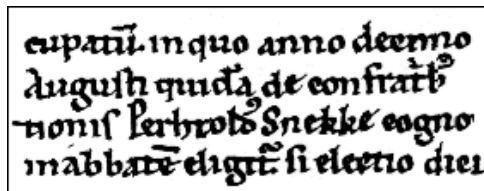 cupatū. in quo anno decimo
Augusti quidā de confratbꝰ
tionis Perhtoldꝰ Snekke cogno
in abbatē eligit᷑. si electio dici